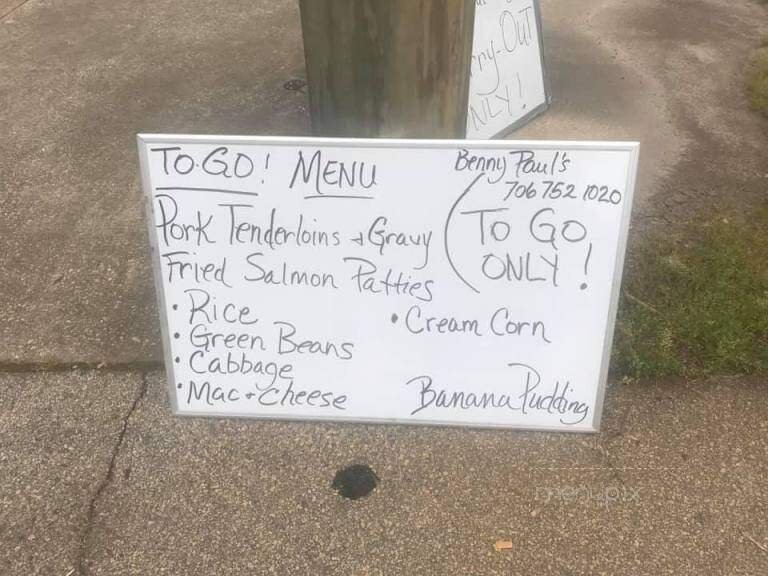 rry-Out
NLY!
TO-GO! MENU
Benny Paul's
706 752 1020
(TO GO
ONLY!
Pork Tenderloins + Gravy
Fried Salmon Patties
• Rice
• Green Beans
• Cabbage
• Mac + Cheese
• Cream Corn
Banana Pudding
menupix